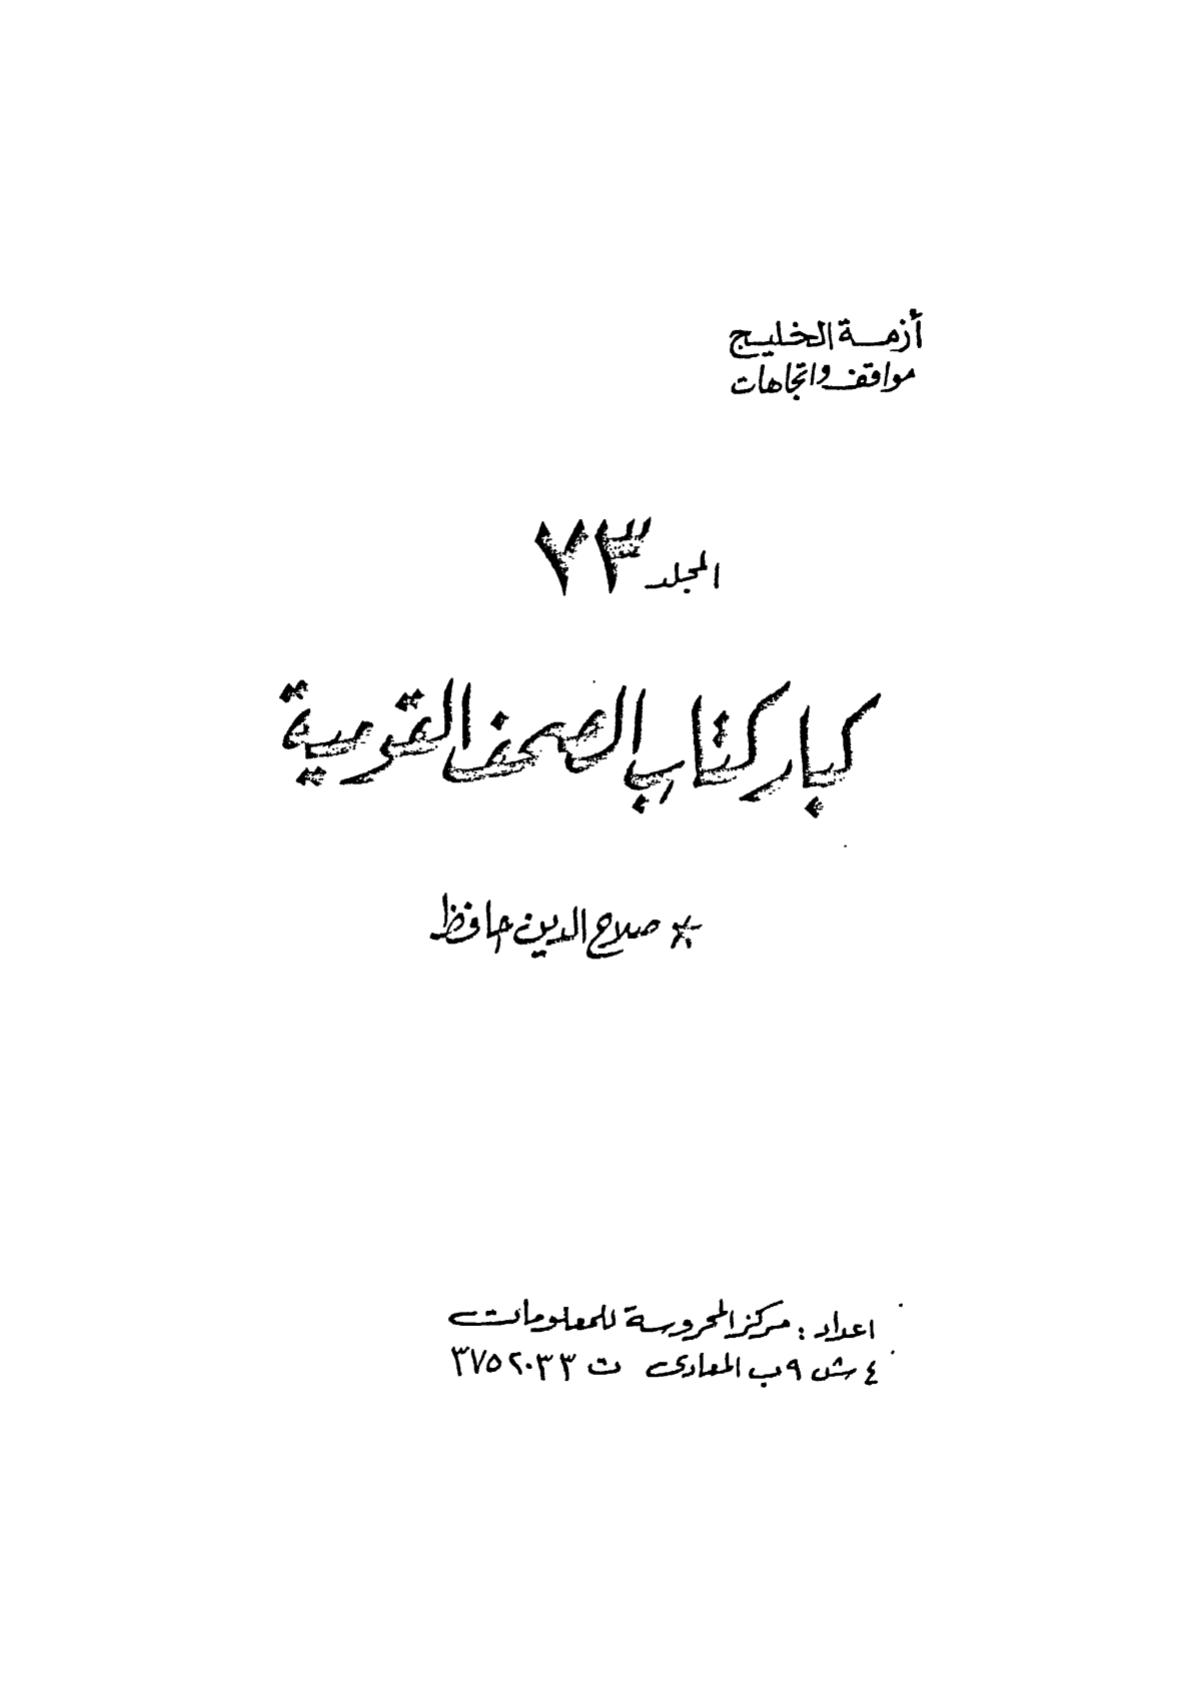 أزمة الخليج
مواقف واتجاهات
المجلد ٧٣
كبار كتاب الصحف القومية
* صلاح الدين حافظ
اعداد : مركز المحروسة للمعلومات
٤ ش ٩ب المعادى ت ٣٧٥٢٠٣٣